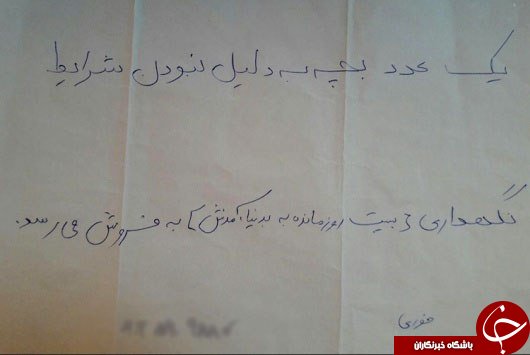 یک عدد بچه به دلیل نبودن شرایط
نگهداری (بیست روز مانده به بدنیا آمدنش) به فروش می رسد.
فوری
باشگاه خبرنگاران